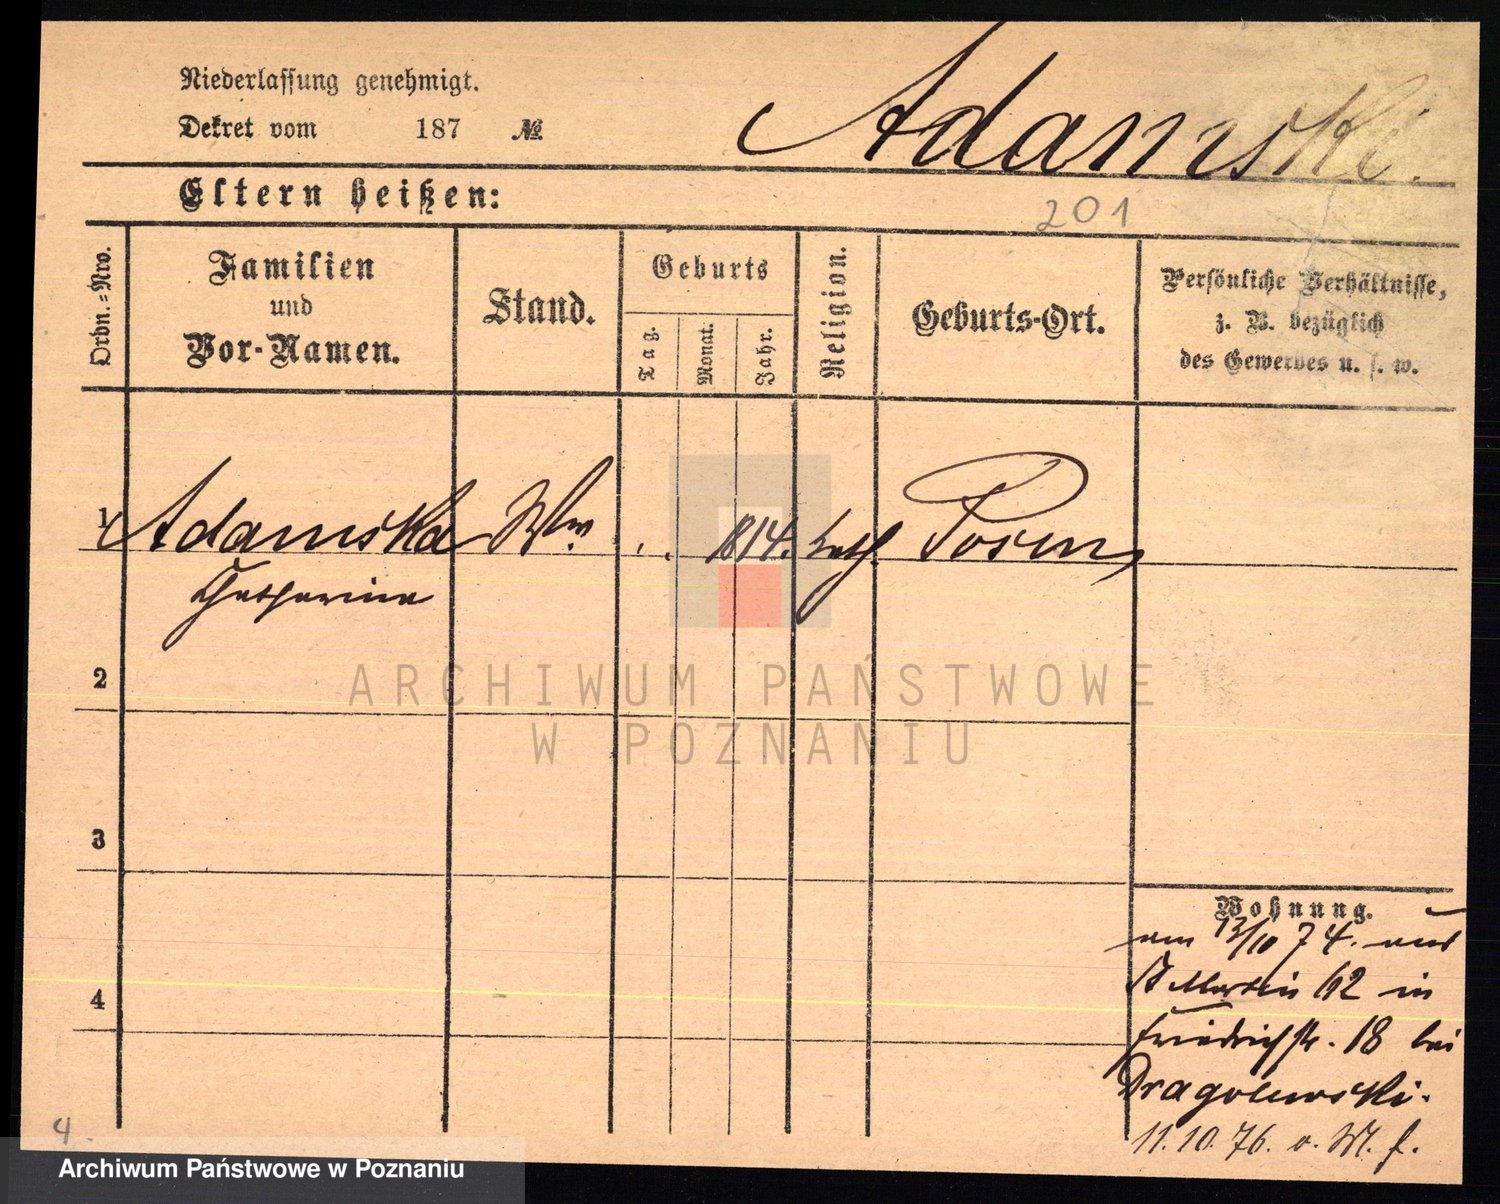 Niederlassung genehmigt.
Dekret vom 187 №
Adamski.
Eltern heißen:
201
Ordn.=Nro.
Familien
und
Vor-Namen.
Stand.
Geburts
Tag.
Monat.
Jahr.
Religion.
Geburts-Ort.
Persönliche Verhältnisse,
z. B. bezüglich
des Gewerbes u. s. w.
1 Adamska Ww. . . 1814. kath. Posen
Catharina
2
ARCHIWUM PAŃSTWOWE
W POZNANIU
3
4
Wohnung.
am 13/10 74. aus
St Martin 62 in
Friedrichstr. 18 bei
Dragolewski.
11.10.76.
4.
Archiwum Państwowe w Poznaniu